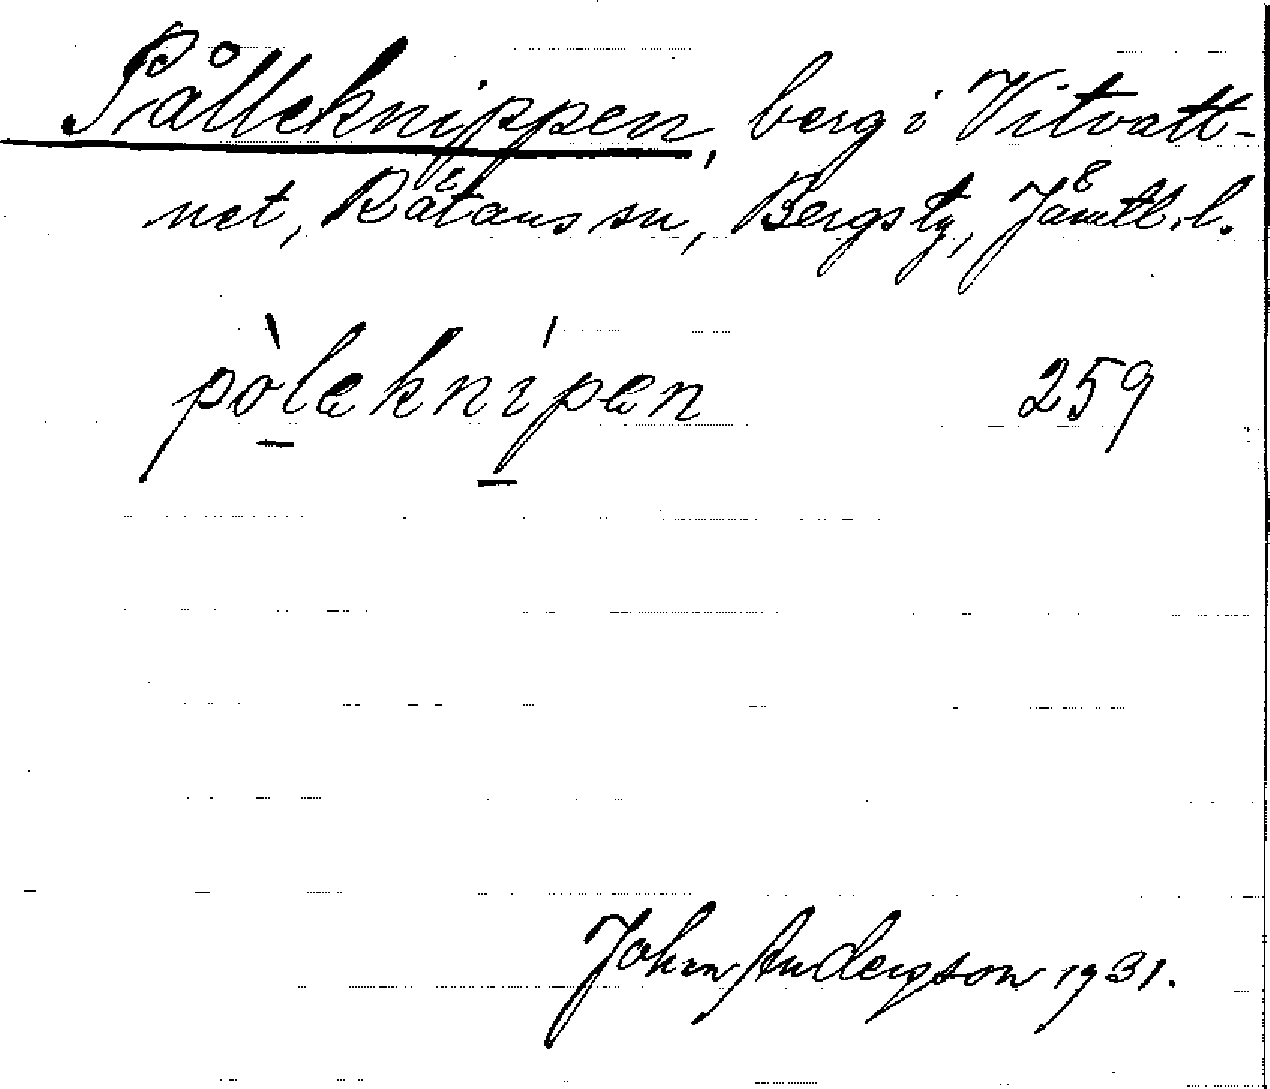 Pålleknippen, berg i Vitvatt-
net, Rätans sn, Bergs tg, Jämtl. l.
pòleknípen 259
John Anderson 1931.